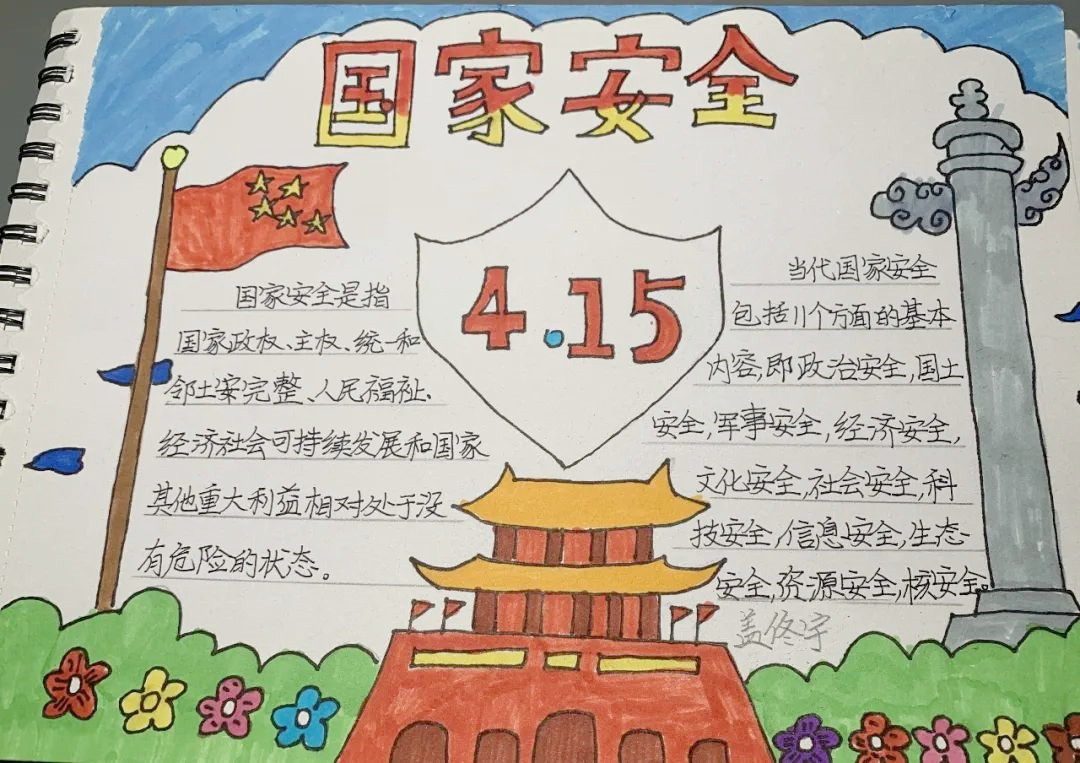 国家安全
4.15
国家安全是指
国家政权、主权、统一和
邻土案完整、人民福祉、
经济社会可持续发展和国家
其他重大利益相对处于没
有危险的状态。
当代国家安全
包括11个方面的基本
内容,即政治安全,国土
安全,军事安全,经济安全,
文化安全,社会安全,科
技安全,信息安全,生态
安全,资源安全,核安全。
盖佟宇